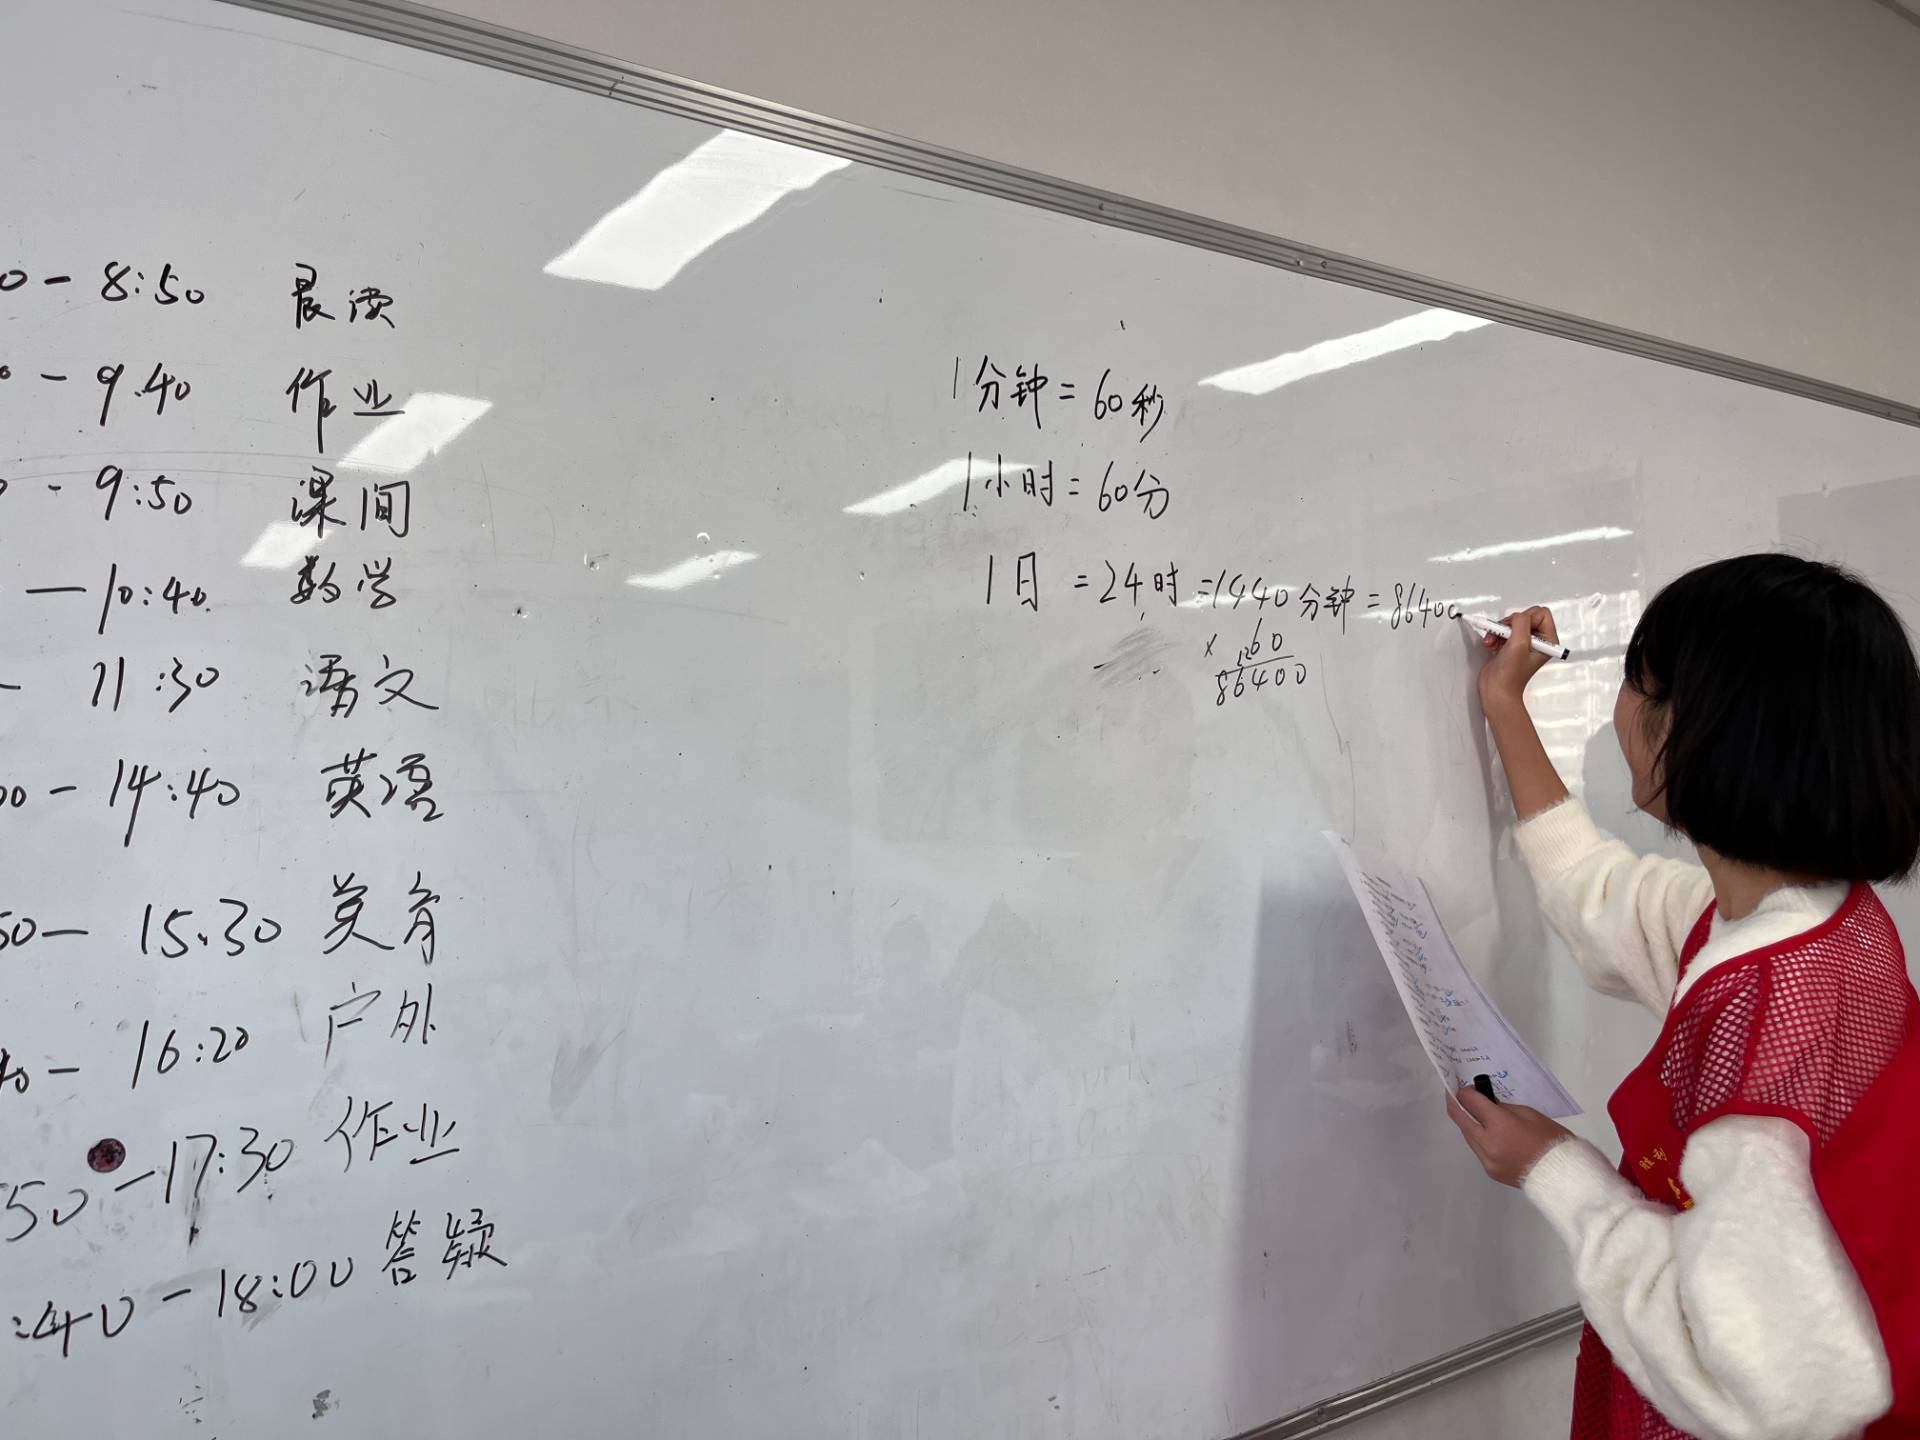 0 - 8:50 晨读
0 - 9.40 作业
- 9:50 课间
— 10:40 数学
- 11:30 语文
00 - 14:40 英语
50 — 15.30 美育
40 — 16:20 户外
50 — 17:30 作业
:40 - 18:00 答疑
1分钟 = 60秒
1小时 = 60分
1日 = 24时 = 1440分钟 = 86400
× 60
86400
胜利